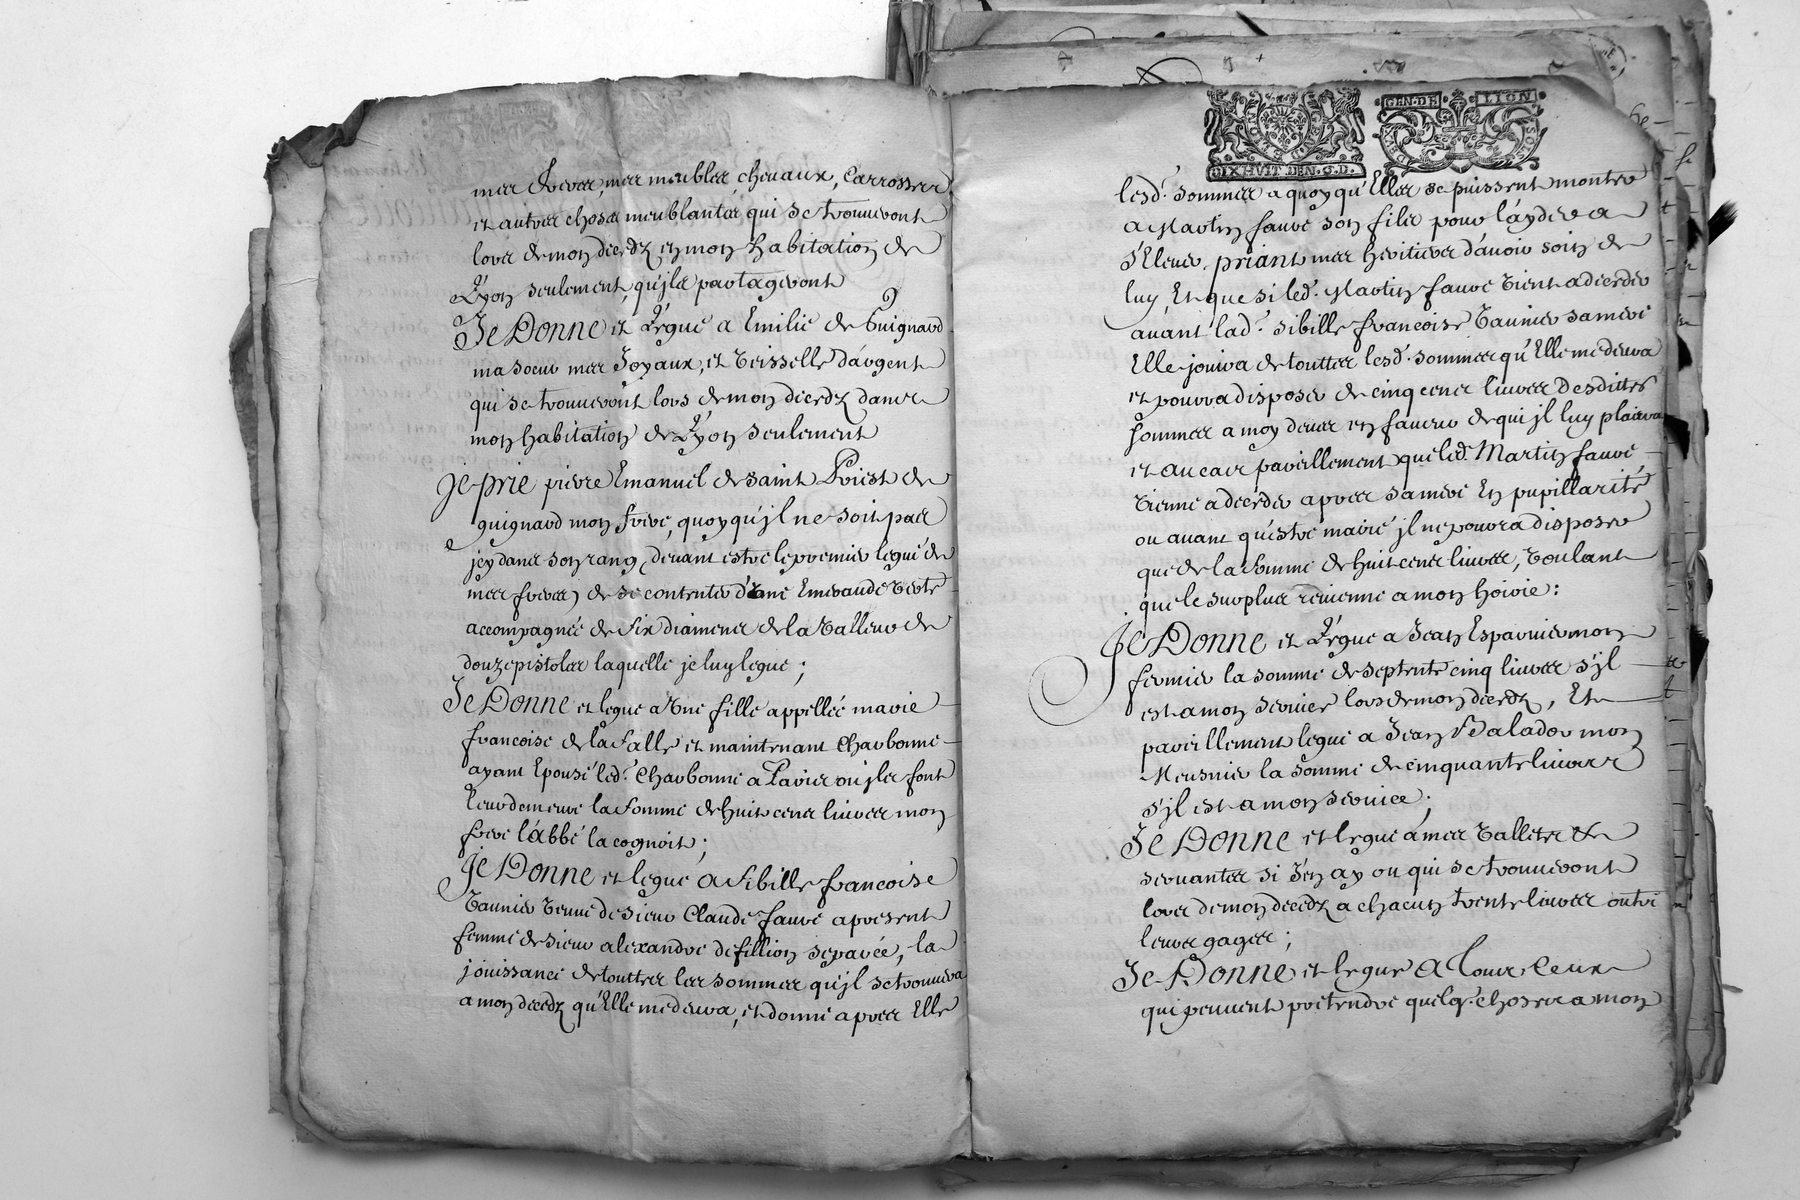 mes freres, mes meubles, chevaux, Carrosses
et autres choses meublantes qui se trouveront
lors de mon decedz en mon habitation de
Lyon seulement, qu'jls partageront
Je Donne et Legue a Emilie de Guignard
ma soeur mes Joyaux, et Veisselle d'argent
qui se trouveront lors de mon decedz dans
mon habitation de Lyon seulement
Je prie pierre Emanuel de saint Priest de
guignard mon frere, quoyqu'jl ne soit pas
jcy dans son rang, devant estre le premier legué de
mes freres, de se contenter d'une Emeraude Verte
accompagnée de six diamens de la Valleur de
douze pistoles laquelle je luy legue;
Je Donne et legue a Une fille appellée marie
francoise de la Salle et maintenant Charbonne
ayant Epousé led.t Charbonne a Paris ou jls font
leur demeure la somme de huit cens livres mon
frere l'Abbé la cognoit;
Je Donne et legue a Sibille francoise
Vaunier Veuve de sieur Claude faure a present
femme de sieur alexandre de fillion separée, la
jouissance de touttes les sommes qu'jl se trouvera
a mon decedz qu'Elle me devra, et donne apres Elle
DIX HUIT DEN. Q.D.
GEN. DE LION
lesd.t sommes a quoy qu'Elles se puissent monter
a Martin faure son fils pour l'ayder a
s'Elever, priant mes heritiers d'avoir soin de
luy Et que si led.t Martin faure Vient a deceder
avant lad.t Sibille francoise Vaunier sa mere
Elle jouira de touttes lesd.t sommes qu'Elle me devra
et pourra disposer de cinq cens livres Desdittes
sommes a moy deues en faveur de qui jl luy plaira
et au cas pareillement que led. Martin fauré
Vienne a deceder apres sa mere En pupillarité
ou avant qu'estre marié jl ne pourra disposer
que de la somme de huit cens livres, Voulant
que le surplus revienne a mon hoirie:
Je Donne et Legue a Jean Esparvier mon
fermier la somme de septente cinq livres s'jl
est a mon service lors de mon decedz, Et
pareillement legue a Jean Balador mon
Meusnier la somme de cinquante livres
s'jl est a mon service;
Je Donne et legue a mes Vallets &
servantes si J'en ay ou qui se trouveront
lors de mon decedz a chacun trente livres outre
leurs gages;
Je Donne et legue A Tous Ceux
qui peuvent pretendre quelq. choses a mon